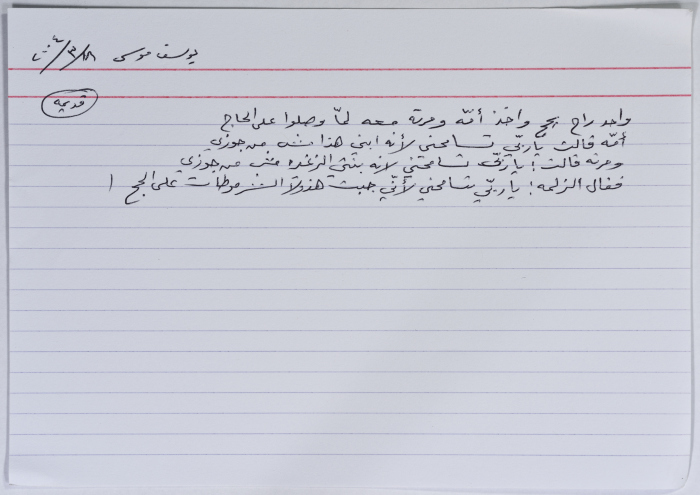 يوسف موسى ١٨/٣/٢٠٠٤
قديمة
واحد راح يحج واخذ أمّه ومرته معه لمّا وصلوا على الحاج
أمّه قالت يا ربّي تسامحني لأنه ابني هذا مش من جوزي
ومرته قالت: يا ربّي تسامحني لانه بنتي الزغيره مش من جوزي
فقال الزلمه: يا ربّي تسامحني لأنّي جبت هذولا الشرموطات على الحج !